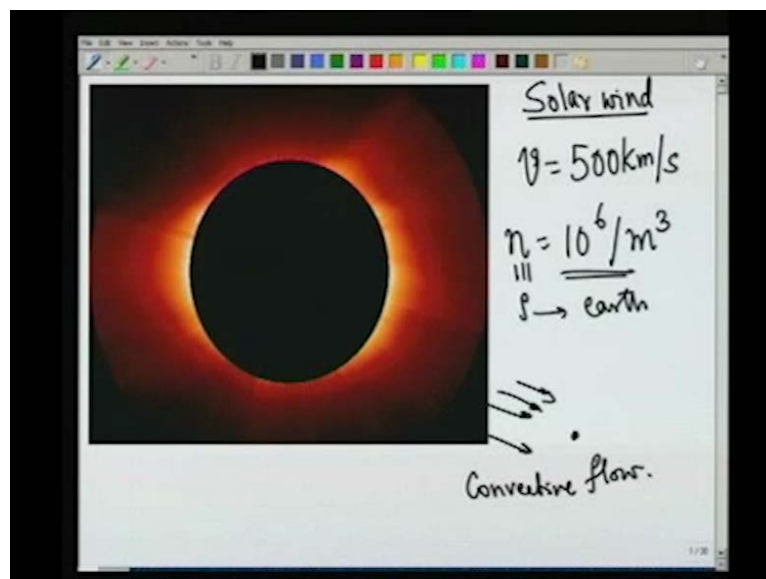 File Edit View Insert Actions Tools Help
B I
Solar wind
v = 500km/s
n = 10⁶/m³
ρ → earth
Convective flow.
1/30